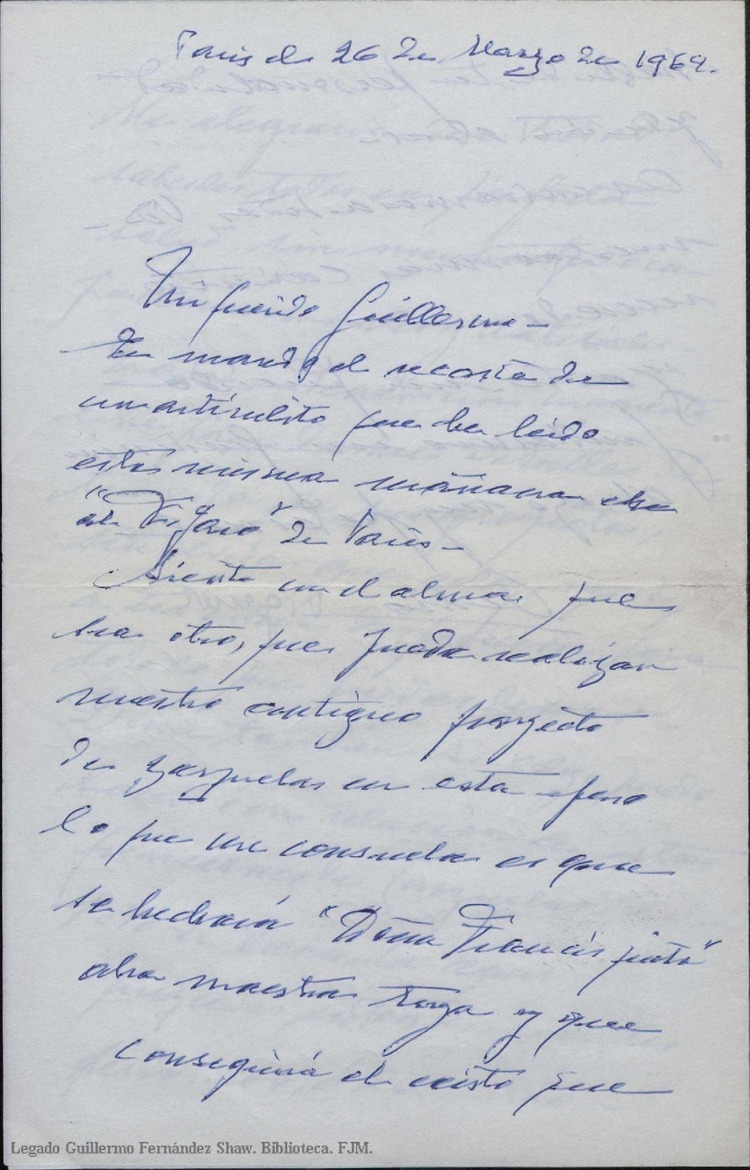 Paris de 26 de Marzo de 1964.
Mi querido Guillermo -
Te mando el recorte de
un articulito que he leido
esta misma mañana en
el "Figaro" de Paris -
Siento en el alma que
sea otro, que pueda realizar
nuestro antiguo proyecto
de zarzuelas en esta
lo que me consuela es que
se hechará "Doña Francisquita"
obra maestra tuya y que
conseguirá el exito que
Legado Guillermo Fernández Shaw. Biblioteca. FJM.